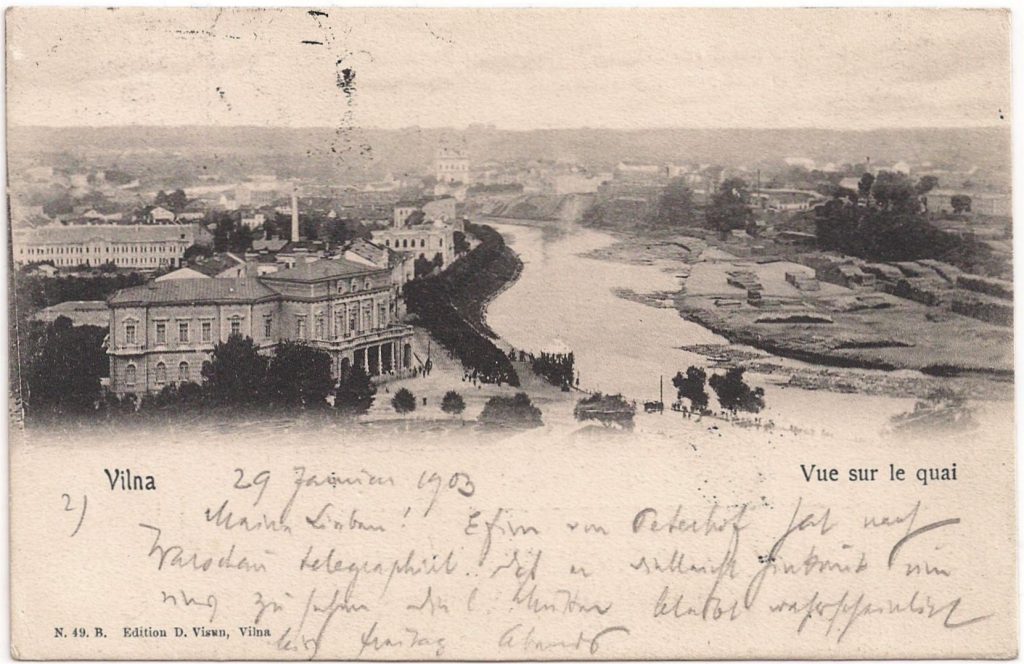 Vilna
Vue sur le quai
29 Januar 1903
2)
Meine Lieben! Efim von Peterhof hat nach
Warschau telegraphirt. daß er vielleicht hinkommt um
uns zu sehen die l. Mutter bleibt wahrscheinlich
bis Freitag Abends
N. 49. B. Edition D. Visun, Vilna